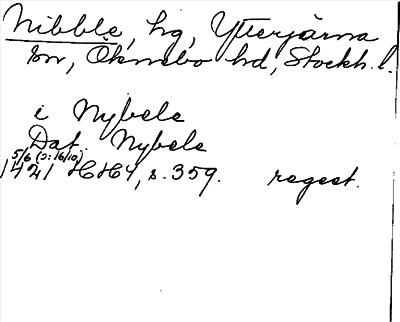 Nibble, hg, Ytterjärna
sn, Öknebo hd, Stockh. l.
i Nybele
Dat. Nybele
5/6 (ɔ: 16/10)
1421 HH 1, s. 359. regest.